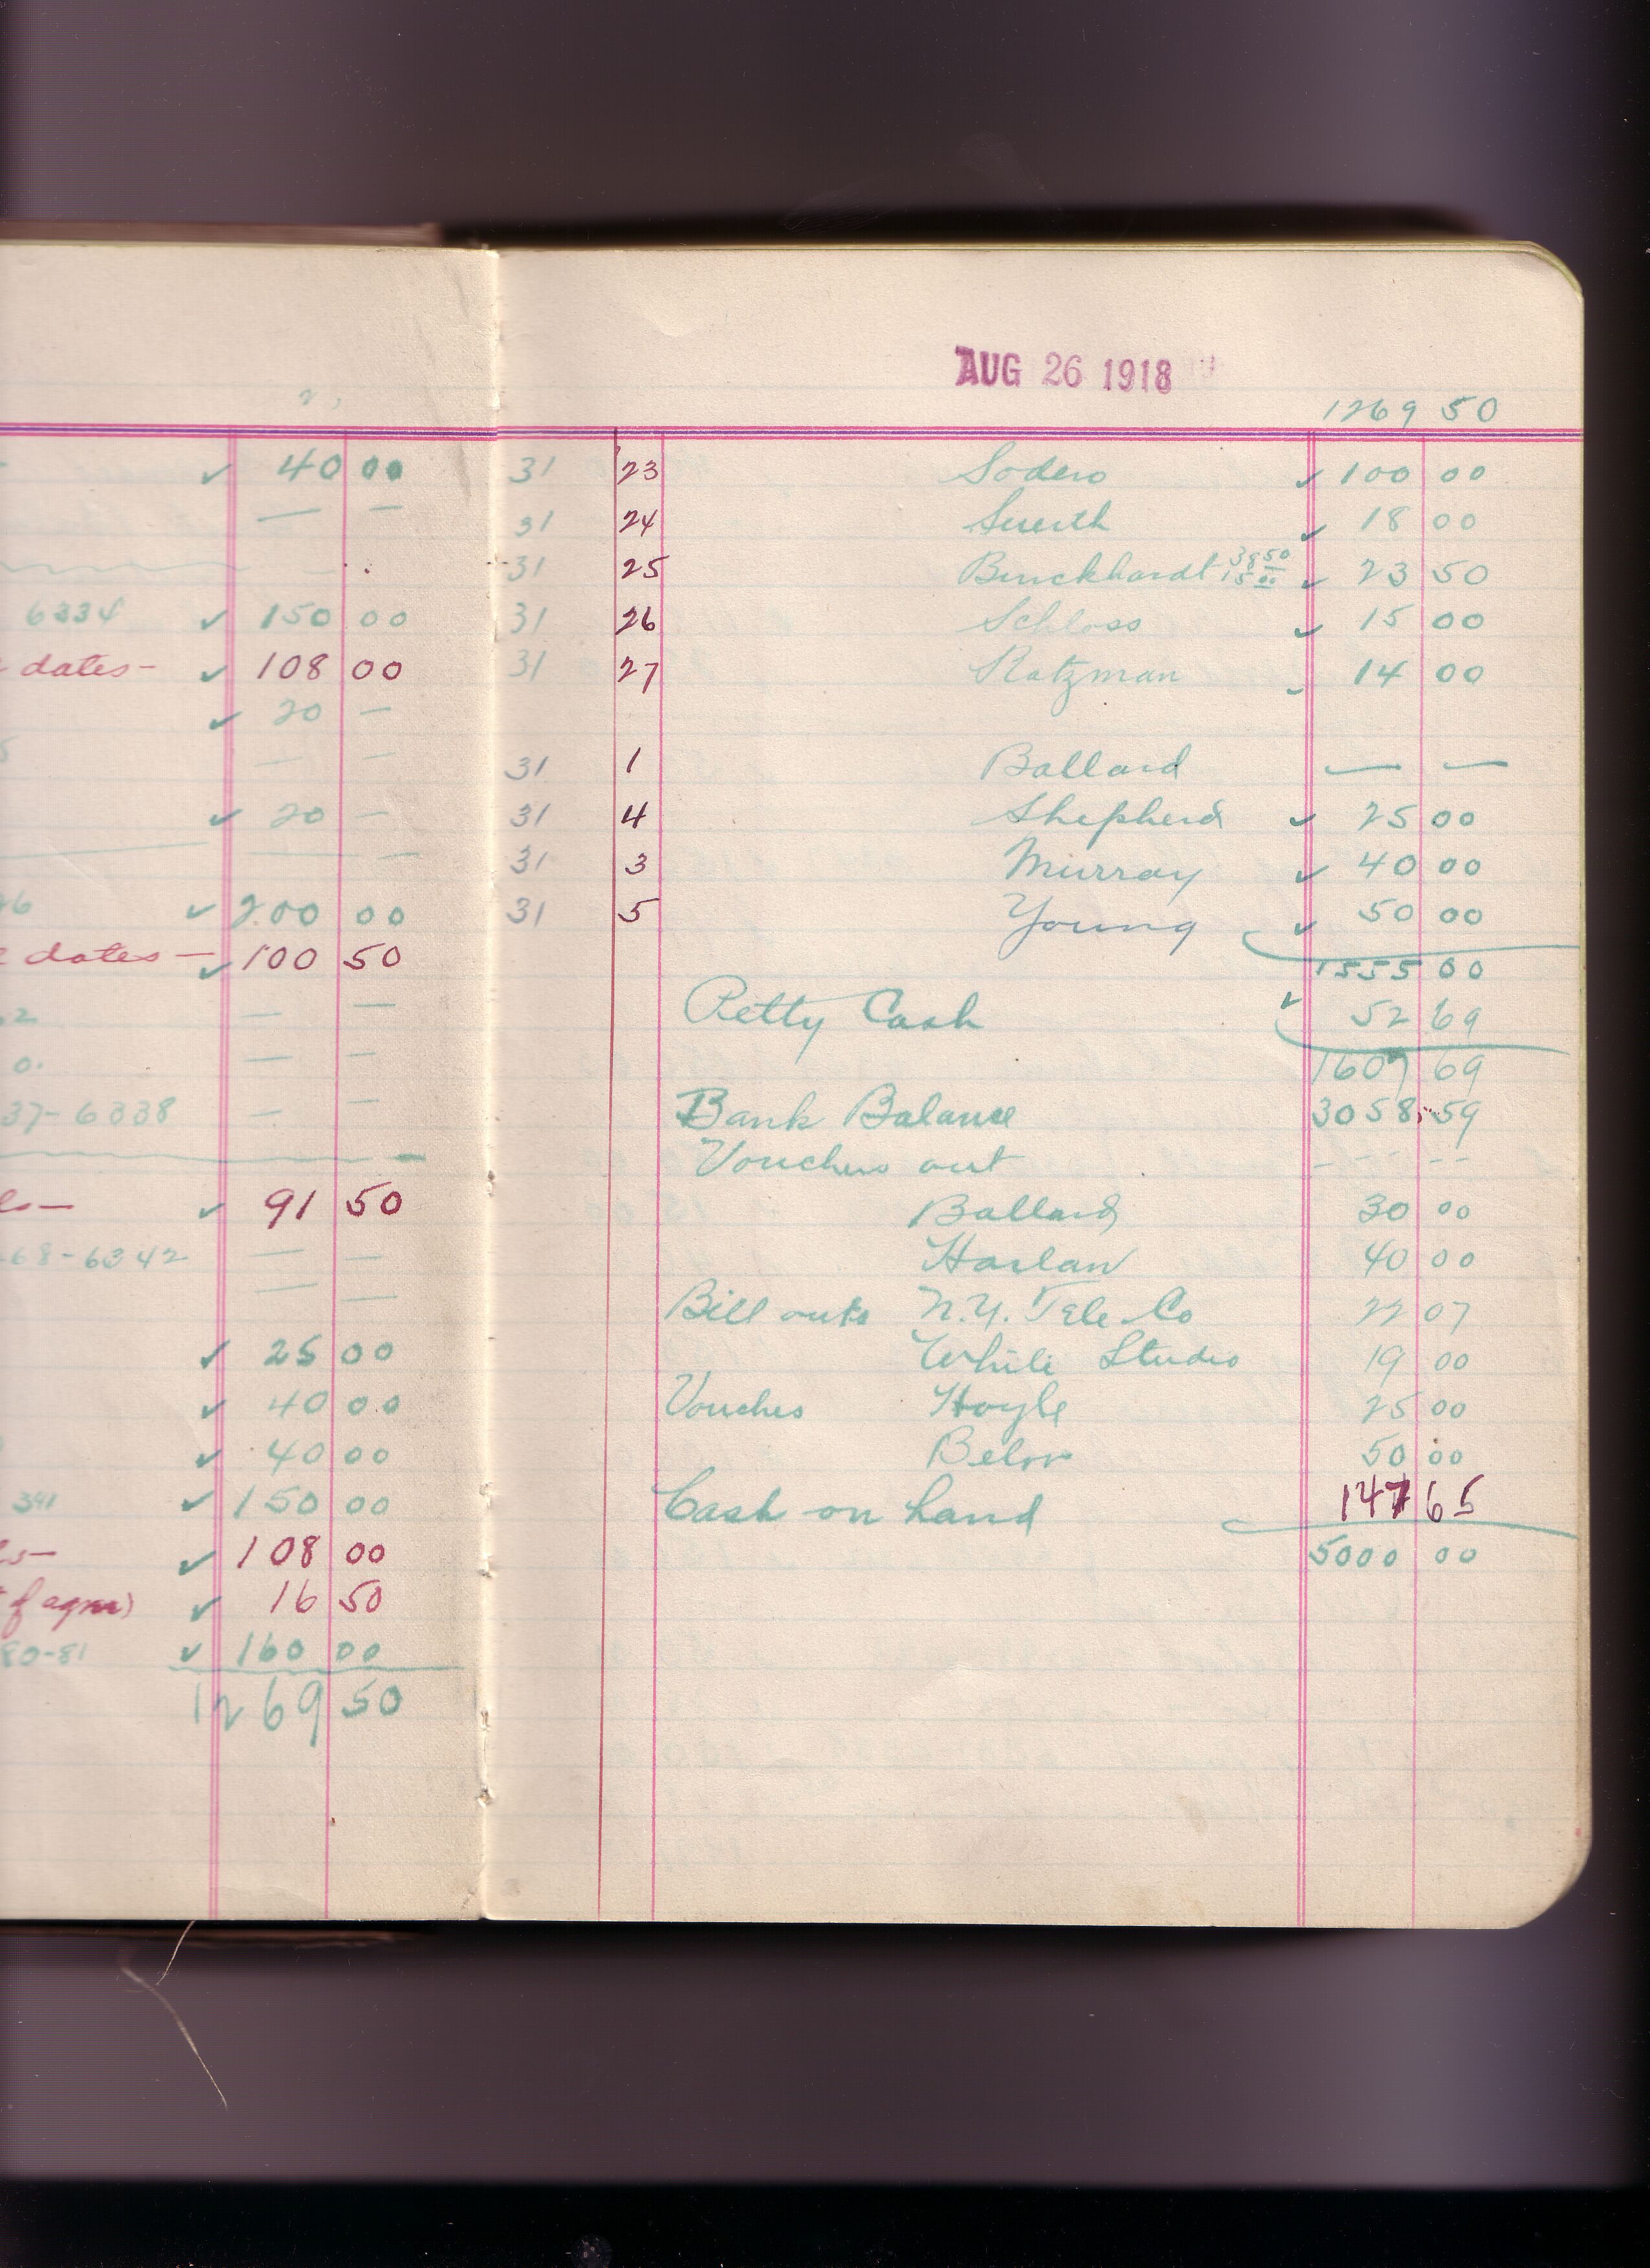 40 00
— —
6334 ✓ 150 00
dates— ✓ 108 00
✓ 20 —
— —
✓ 20 —
— —
46 ✓ 200 00
dates— ✓ 100 50
— —
— —
37-6338 — —
✓ 91 50
68-6342 — —
— —
✓ 25 00
✓ 40 00
✓ 40 00
341 ✓ 150 00
✓ 108 00
✓ 16 50
80-81 ✓ 160 00
1269 50
AUG 26 1918
1269 50
31 23 Sodero ✓ 100 00
31 24 ✓ 18 00
31 25 Burckhardt 38 50 15 00 ✓ 23 50
31 26 Schloss ✓ 15 00
31 27 Ratzman ✓ 14 00
31 1 Ballard — —
31 4 Shepherd ✓ 25 00
31 3 Murray ✓ 40 00
31 5 Young ✓ 50 00
1555 00
Petty Cash ✓ 52 69
1607 69
Bank Balance 3058 59
Vouchers out - - - - -
Ballard 30 00
Harlan 40 00
Bill outs N.Y. Tele Co 22 07
White Studio 19 00
Vouches Hoyle 25 00
50 00
Cash on hand 147 65
5000 00